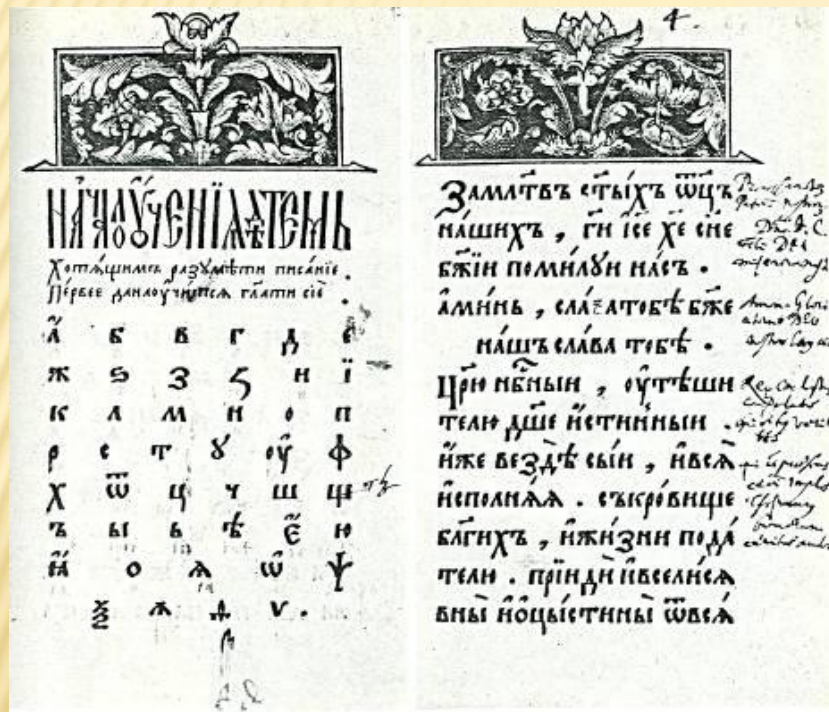 НАЧАЛО ОУЧЕНЇѦ ДѢТЕМЪ
Хотѧщимъ разꙋмѣти писанїе .
Первее да наоучитсѧ гл҃ати сїѧ
А б в г д е
ж ѕ з ҕ и ї
к л м н о п
р с т ꙋ оу ф
х ѿ ц ч ш щ
ъ ы ь ѣ є ю
ꙗ о ѧ ѡ ѱ
ѯ ѧ ѵ .
4.
За мл҃твъ ст҃ыхъ ѿц҃ъ
нашихъ , г҃и і҃се х҃е сн҃е
бж҃їи помилꙋи насъ .
аминь , слаⷡ҇а тобѣ бж҃е
нашъ слава тобѣ .
Цр҃ю нбⷭ҇ныи , оутѣши
телю дш҃е истинныи .
иже вездѣ сыи , и всѧ
исполнѧѧ . съкровище
благихъ , и жизни пода
телю . прїиди и вселисѧ
вны и оцысти ны ѿ всѧ